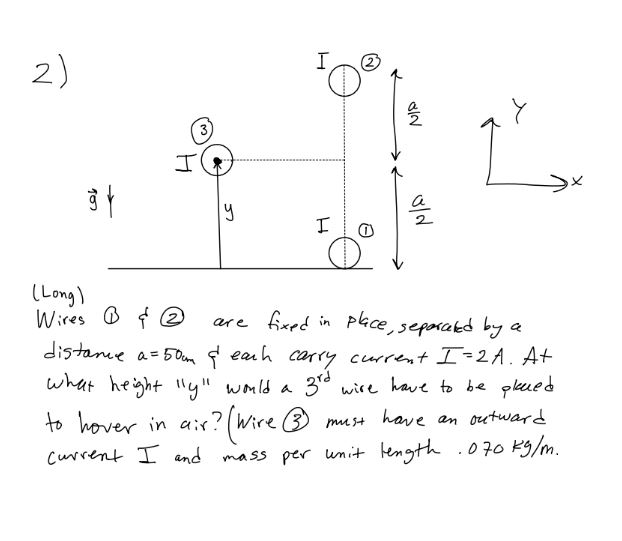 2)
I ②
a/2
③
I
Y
x
g
y
a/2
I ①
(Long)
Wires ① & ② are fixed in place, separated by a
distance a=50cm & each carry current I=2A. At
what height "y" would a 3rd wire have to be placed
to hover in air? (Wire ③ must have an outward
current I and mass per unit length .070 kg/m.